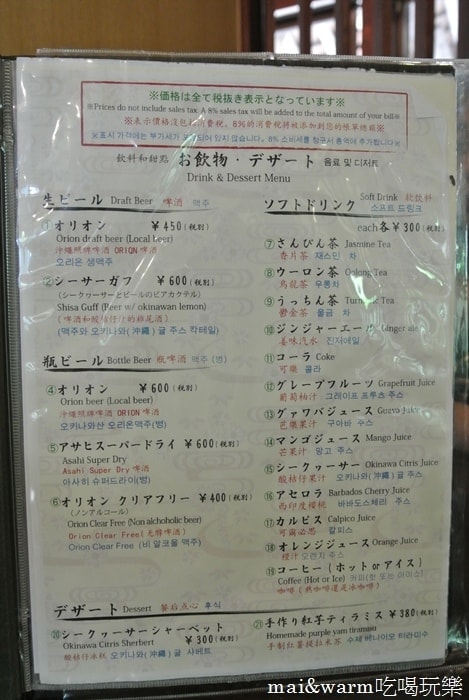 ※価格は全て税抜き表示となっています※
※Prices do not include sales tax. A 8% sales tax will be added to the total amount of your bill※
※表示價格沒包括消費税。8%的消費税將被添加到您的帳單總額※
飲料和甜點 お飲物・デザート 음료 및 디저트
Drink & Dessert Menu
生ビール Draft Beer 啤酒 맥주
①オリオン ￥450(税別)
Orion draft beer (Local beer)
沖縄照牌啤酒 ORION啤酒
오리온 생맥주
②シーサーガフ ￥600(税別)
(シークヮーサーとビールのビアカクテル)
Shisa Guff (Beer w/ okinawan lemon)
(맥주와 오키나와(沖縄)귤 주스 칵테일)
瓶ビール Bottle Beer 瓶啤酒 맥주 (병)
④オリオン ￥600(税別)
Orion beer (Local beer)
沖縄照牌啤酒 ORION啤酒
오키나와산 오리온맥주(병)
⑤アサヒスーパードライ ￥600(税別)
Asahi Super Dry
Asahi Super Dry 啤酒
아사히 슈퍼드라이(병)
⑥オリオン クリアフリー ￥400(税別)
(ノンアルコール)
Orion Clear Free (Non alchoholic beer)
Orion Clear Free(无醇啤酒)
Orion Clear Free (비 알코올 맥주)
ソフトドリンク Soft Drink 軟飲料
소프트 드링크
each各￥300(税別)
⑦さんぴん茶 Jasmine Tea
香片茶 재스민 차
⑧ウーロン茶 Oolong Tea
烏龍茶 우롱차
⑨うっちん茶 Turmeric Tea
鬱金茶 울금 차
⑩ジンジャーエール Ginger ale
姜味汽水 진저에일
⑪コーラ Coke
可樂 콜라
⑫グレープフルーツ Grapefruit Juice
葡萄柚汁 그레이프 프루츠 주스
⑬グァバジュース Guava Juice
芭樂果汁 구아바 주스
⑭マンゴジュース Mango Juice
芒果汁 망고 주스
⑮シークヮーサー Okinawa Citrus Juice
酸桔仔果汁 오키나와(沖縄)귤 주스
⑯アセロラ Barbados Cherry Juice
西印度櫻桃 바바도스체리 주스
⑰カルピス Calpico Juice
可爾必思 칼피스
⑱オレンジジュース Orange Juice
橙汁 오렌지 주스
⑲コーヒー (ホット or アイス)
Coffee (Hot or Ice) 커피(핫 또는 아이스)
咖啡(熱咖啡還是冰咖啡)
デザート Dessert 餐后点心 후식
⑳シークヮーサーシャーベット
Okinawa Citrus Sherbert ￥300(税別)
酸桔仔冰糕 오키나와(沖縄)귤 샤베트
㉑手作り紅芋ティラミス ￥380(税別)
Homemade purple yam tiramisu
手制紅薯提拉米苏 수제 베니이모 티라미수
mai&warm吃喝玩樂